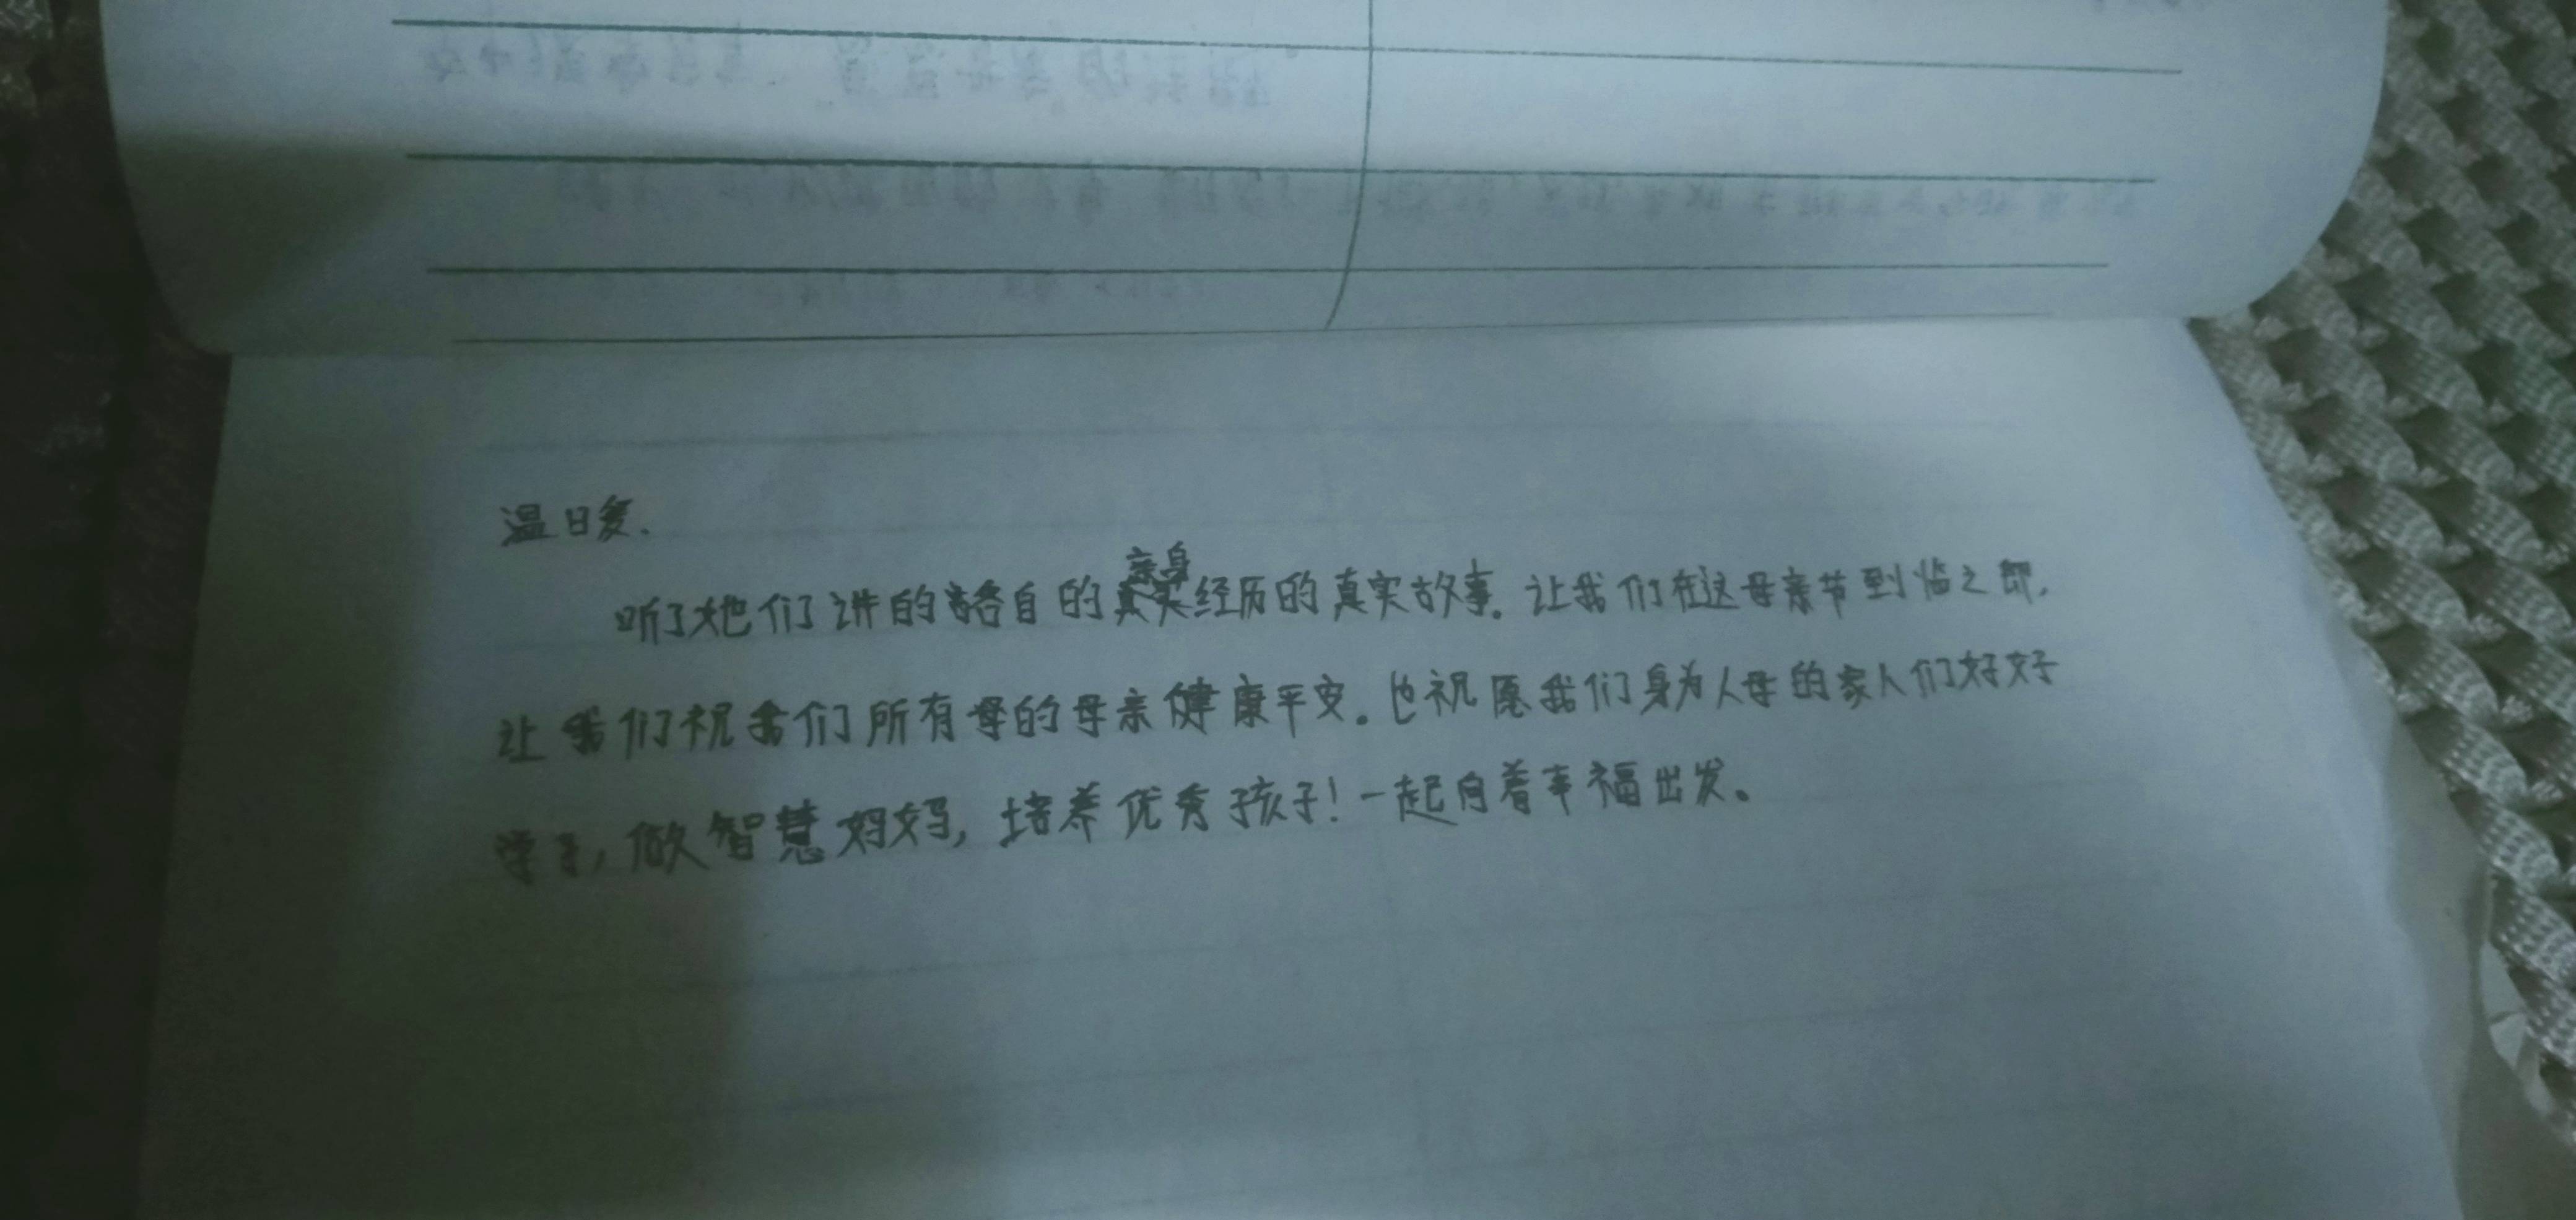 温日爱.
听了她们讲的各自的亲身经历的真实故事。让我们在这母亲节到临之即,
让我们祝我们所有母的母亲健康平安。也祝愿我们身为人母的家人们好好
学习,做智慧妈妈,培养优秀孩子!一起向着幸福出发。